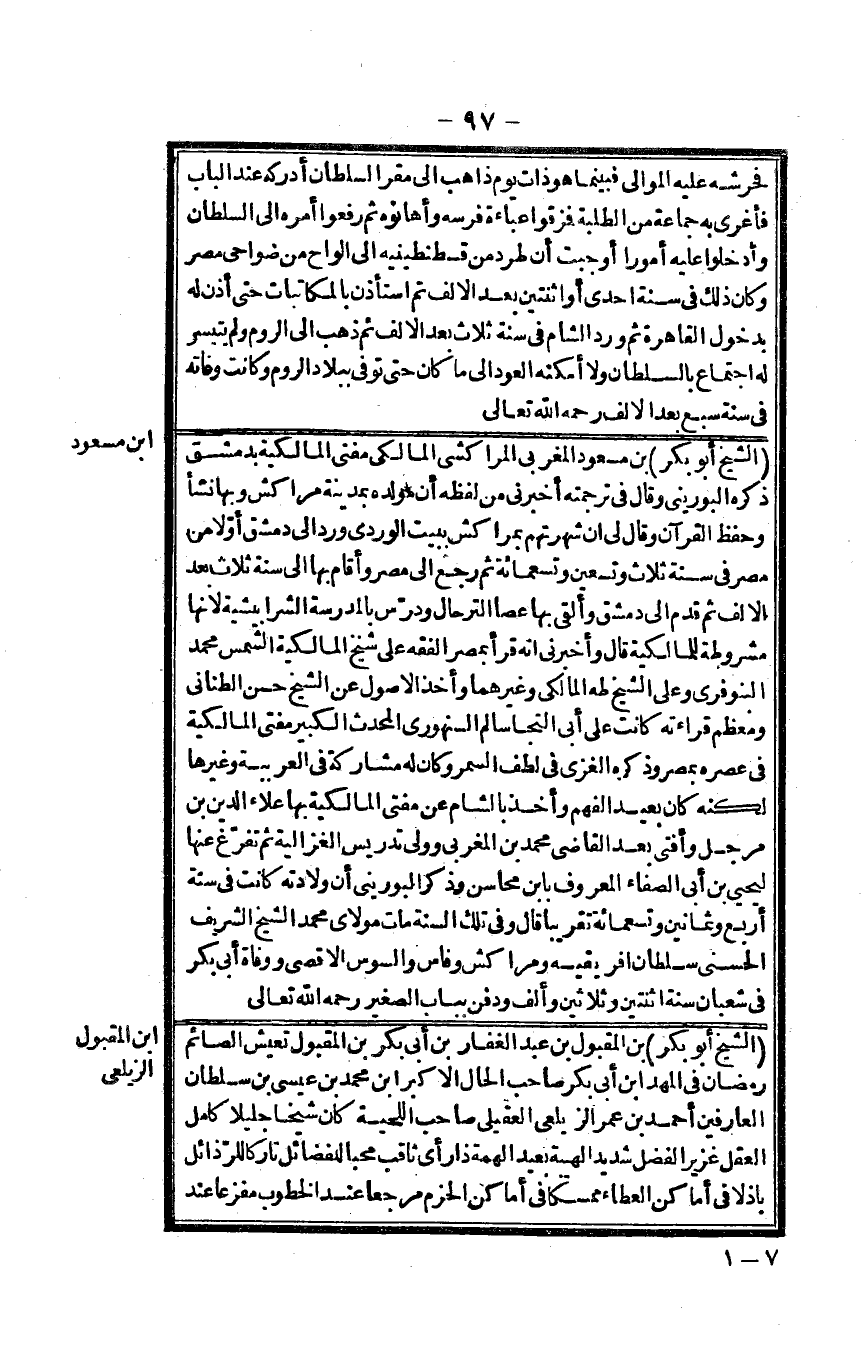 - ٩٧ -
فحرشه عليه الموالى فبينما هو ذات يوم ذاهب الى مقر السلطان أدركه عند الباب
فأغرى به جماعة من الطلبة فمزقوا عباءة فرسه وأهانوه ثم رفعوا أمره الى السلطان
وأدخلوا عليه أمورا أوجبت أن طرد من قسطنطينيه الى الواح من ضواحى مصر
وكان ذلك فى سنة احدى أو اثنتين بعد الالف ثم استأذن بالمكاتبات حتى أذن له
بدخول القاهرة ثم ورد الشام فى سنة ثلاث بعد الالف ثم ذهب الى الروم ولم يتيسر
له اجتماع بالسلطان ولا أمكنه العود الى ما كان حتى توفى ببلاد الروم وكانت وفاته
فى سنة سبع بعد الالف رحمه الله تعالى
ابن مسعود
(الشيخ أبو بكر) بن مسعود المغربى المراكشى المالكى مفتى المالكية بدمشق
ذكره البورينى وقال فى ترجمته أخبرنى من لفظه أن مولده بمدينة مراكش وبها نشأ
وحفظ القرآن وقال لى ان شهرتهم بمراكش ببيت الوردى ورد الى دمشق أولا من
مصر فى سنة ثلاث وتسعين وتسعمائة ثم رجع الى مصر وأقام بها الى سنة ثلاث بعد
الالف ثم قدم الى دمشق وألقى بها عصا الترحال ودرّس بالمدرسة الشرابيشية لانها
مشروطة للمالكية قال وأخبرنى انه قرأ بمصر الفقه على شيخ المالكية الشمس محمد
النوفرى وعلى الشيخ طه المالكى وغيرهما وأخذ الاصول عن الشيخ حسن الطنانى
ومعظم قراءته كانت على أبى النجا سالم السنهورى المحدث الكبير مفتى المالكية
فى عصره بمصر وذكره الغزى فى لطف السمر وكان له مشاركة فى العربية وغيرها
لكنه كان بعيد الفهم وأخذ بالشام عن مفتى المالكية بها علاء الدين بن
مرجل وأفتى بعد القاضى محمد بن المغربى وولى تدريس الغزالية ثم تفرّغ عنها
ليحيى بن أبى الصفاء المعروف بابن محاسن وذكر البورينى أن ولادته كانت فى سنة
أربع وثمانين وتسعمائة تقريبا قال وفى تلك السنة مات مولاى محمد الشيخ الشريف
الحسنى سلطان افريقيه ومراكش وفاس والسوس الاقصى ووفاة أبى بكر
فى شعبان سنة اثنتين وثلاثين وألف ودفن بباب الصغير رحمه الله تعالى
ابن المقبول
الزيلعى
(الشيخ أبو بكر) بن المقبول بن عبد الغفار بن أبى بكر بن المقبول تعيش الصائم
رمضان فى المهد ابن أبى بكر صاحب الحال الاكبر ابن محمد بن عيسى بن سلطان
العارفين أحمد بن عمر الزيلعى العقيلى صاحب اللحية كان شيخا جليلا كامل
العقل غزير الفضل شديد الهيبة بعيد الهمة ذا رأى ثاقب محبا للفضائل تاركا للرذائل
باذلا فى أماكن العطاء ممسكا فى أماكن الحزم مرجعا عند الخطوب مفزعا عند
٧ - ١